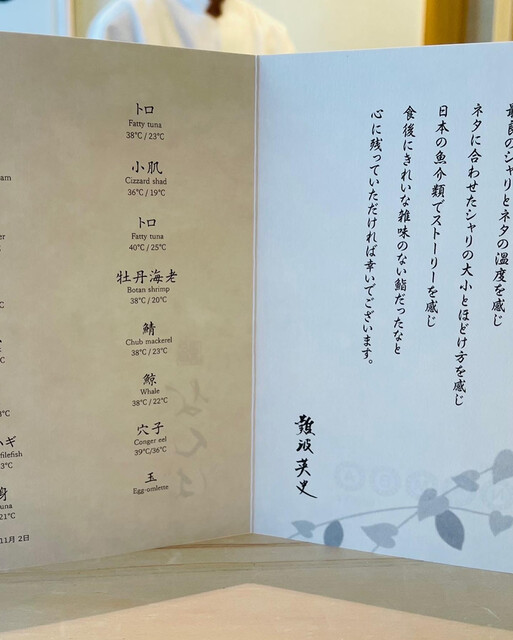 トロ
Fatty tuna
38℃ / 23℃
小肌
Cizzard shad
36℃ / 19℃
トロ
Fatty tuna
40℃ / 25℃
牡丹海老
Botan shrimp
38℃ / 20℃
鯖
Chub mackerel
38℃ / 23℃
鯨
Whale
38℃ / 22℃
穴子
Conger eel
39℃/36℃
玉
Egg-omlette
ハギ
filefish
3℃
身
una
21℃
11月 2日
最良のシャリとネタの温度を感じ
ネタに合わせたシャリの大小とほどけ方を感じ
日本の魚介類でストーリーを感じ
食後にきれいな雑味のない鮨だったなと
心に残っていただければ幸いでございます。
難波英史